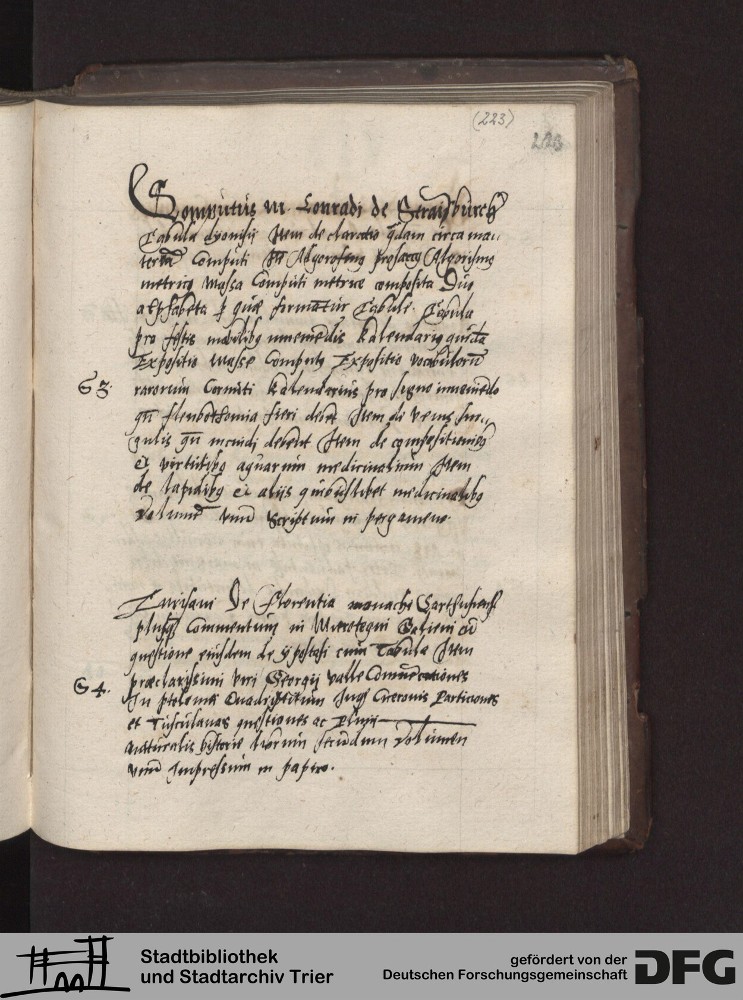 (223)
223
Computus m. Conradi de Straisburch
Tabula dyonisij Item declaratio qdam circa ma„
teriã Computi Itẽ Algorismg prosaicg Algorismg
metricg Massa Computi metrice composita Duo
alphabeta p quæ formãtur Tabule. Tabula
pro festis mobilibg inueniẽdis Kalendariũ quidã
Expositio Masse Computg Expositio vocabulorũ
G 3. rarorum Computi Kalendarius pro signo inueniẽdo
qñ flenbothomia fieri debet Item de venis sin„
gulis qñ incidi debent Item de compositionibg
et virtutibg aquarum medicinalium Item
de lapidibg et aliis quibuslibet medicinalibg
Volumẽ vnũ scriptum in pergameno.
Turisani De Florentia monachi Carthusiensis
plusq Commentum in Microtegni Galieni cũ
questione eiusdem de ypostasi cum Tabula Item
præclarissimi viri Georgij valle Commẽtationes
G 4. In ptolomei Quadriptitum Inq Ciceronis Particiones
et Tusculanas questiones ac Plinij
naturalis historie librum secũdum Volumen
vnũ Impressum in papiro.
Stadtbibliothek
und Stadtarchiv Trier
gefördert von der
Deutschen Forschungsgemeinschaft
DFG